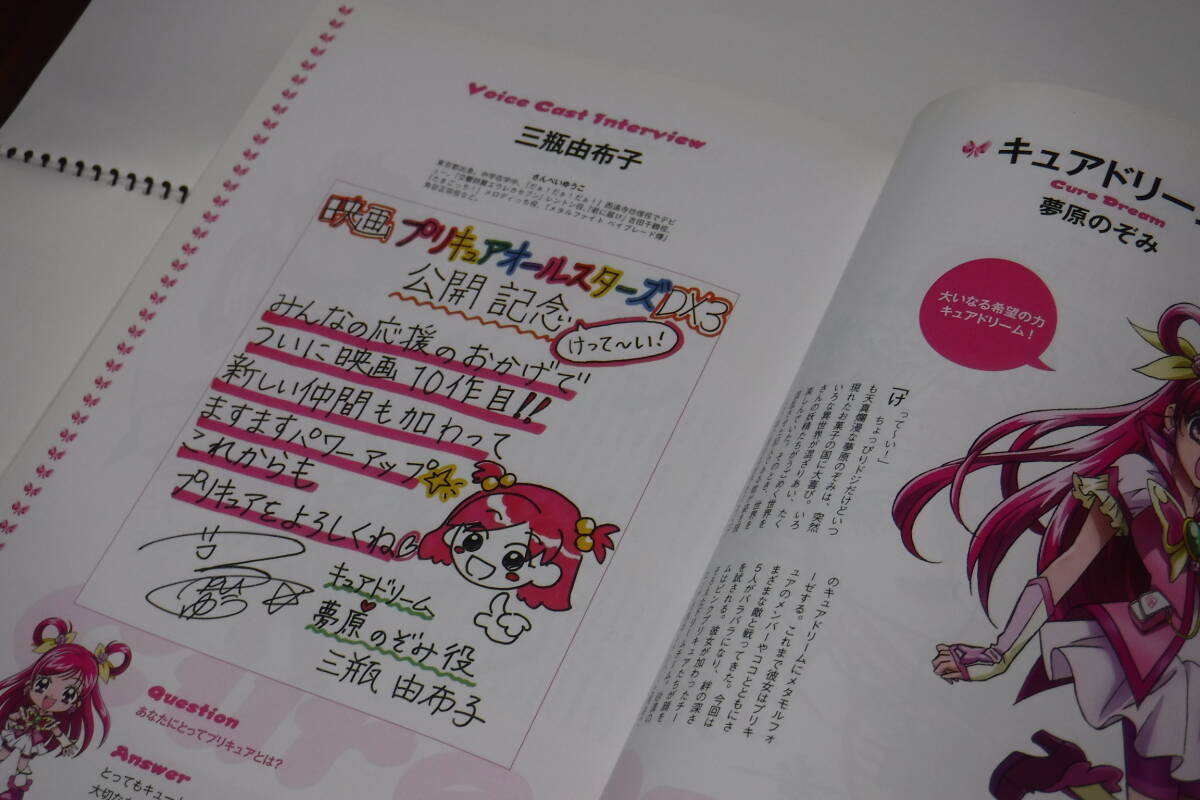 Voice Cast Interview
三瓶由布子
さんぺいゆうこ
映画 プリキュアオールスターズDX3
公開記念
けって〜い!
みんなの応援のおかげで
ついに映画10作目!!
新しい仲間も加わって
ますますパワーアップ
これからも
プリキュアをよろしくね
キュアドリーム
夢原のぞみ役
三瓶 由布子
Question
あなたにとってプリキュアとは?
Answer
とってもキュー
大切な
キュアドリー
Cure Dream
夢原のぞみ
大いなる希望の力
キュアドリーム!
「けって〜い!」
ちょっぴりドジだけどいつ
も天真爛漫な夢原のぞみは、突然
現れたお菓子の国に大喜び。いろ
いろな異世界が混ざりあい、たく
さんの妖精たちが
のキュアドリームにメタモルフォ
ーゼする。これまで彼女はプリキ
ュアのメンバーやココとともにさ
まざまな敵と戦ってきた。今回は
5人がバラバラになり、絆の深さ
を試される。彼女が加わったチー
ムはピンクプリキュアチーム。